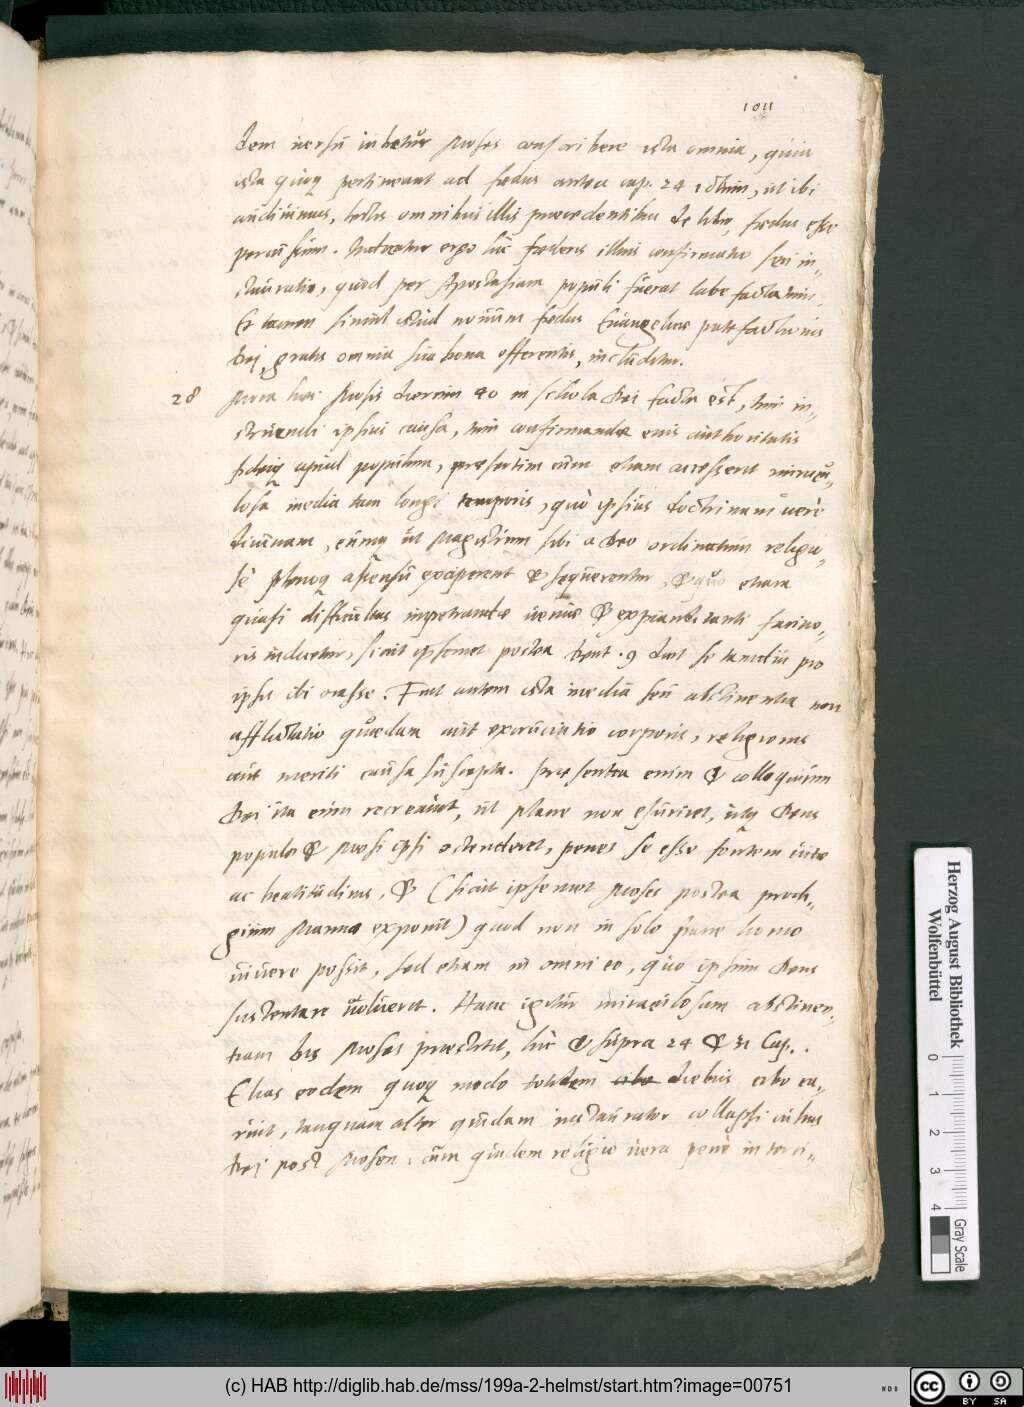 1011
dem uersu iubetur Moses conscribere ista omnia, quia
ista quoq pertineant ad fœdus antea cap. 24 ictum, ut ibi
audiuimus, lectis omnibus illis praecedentibus de libro, fœdus esse
percussum. Notatur ergo hic fœderis illius confirmatio seu in-
stauratio, quod per Apostasiam populi fuerat labefactatum.
Et tamen simul istud nouum fœdus Euangelicae patefactionis
Dei gratis omnia sua bona offerentis, includitur.
28 Mora haec Mosis dierum 40 in schola Dei facta est, tum in-
struendi ipsius causa, tum confirmandæ eius authoritatis
fideiq apud populum, præsertim cum etiam accesserit miracu-
losa inedia tam longi temporis, quò ipsius doctrinam uerè
diuinam, eumq ut Magistrum sibi a Deo ordinatum religio-
sè assensu exciperent & sequerentur, & quo etiam
quasi difficultas impetrandæ ueniæ & expiandi tanti facino-
ris indicetur, sicut ipsemet postea Deut. 9 dicit se tamdiu pro
ipsis ibi orasse. Fuit autem ista inedia seu abstinentia non
afflictatio quædam aut excruciatio corporis, religionis
aut meriti causa suscepta. Præsentia enim & colloquium
Dei ita eum recreauit, ut plane non esuriret, utq Deus
populo & Mosi ipsi ostenderet, penes se esse fontem uitæ
ac beatitudinis, & (sicut ipsemet Moses postea prodi-
gium Manna exponit) quod non in solo pane homo
uiuere possit, sed etiam in omni eo, quo ipsum Deus
sustentare uoluerit. Hanc igitur miraculosam abstinen-
tiam bis Moses præstitit, hic & supra 24 & 31 Cap..
Elias eodem quoq modo totidem cibo diebus cibo ca-
ruit, tanquam alter quidam instaurator collapsi cultus
Dei post Mosen, cum quidem religio uera penè in teri-
Herzog August Bibliothek
Wolfenbüttel
0 1 2 3 4
Gray Scale
(c) HAB http://diglib.hab.de/mss/199a-2-helmst/start.htm?image=00751
NDB
cc BY SA